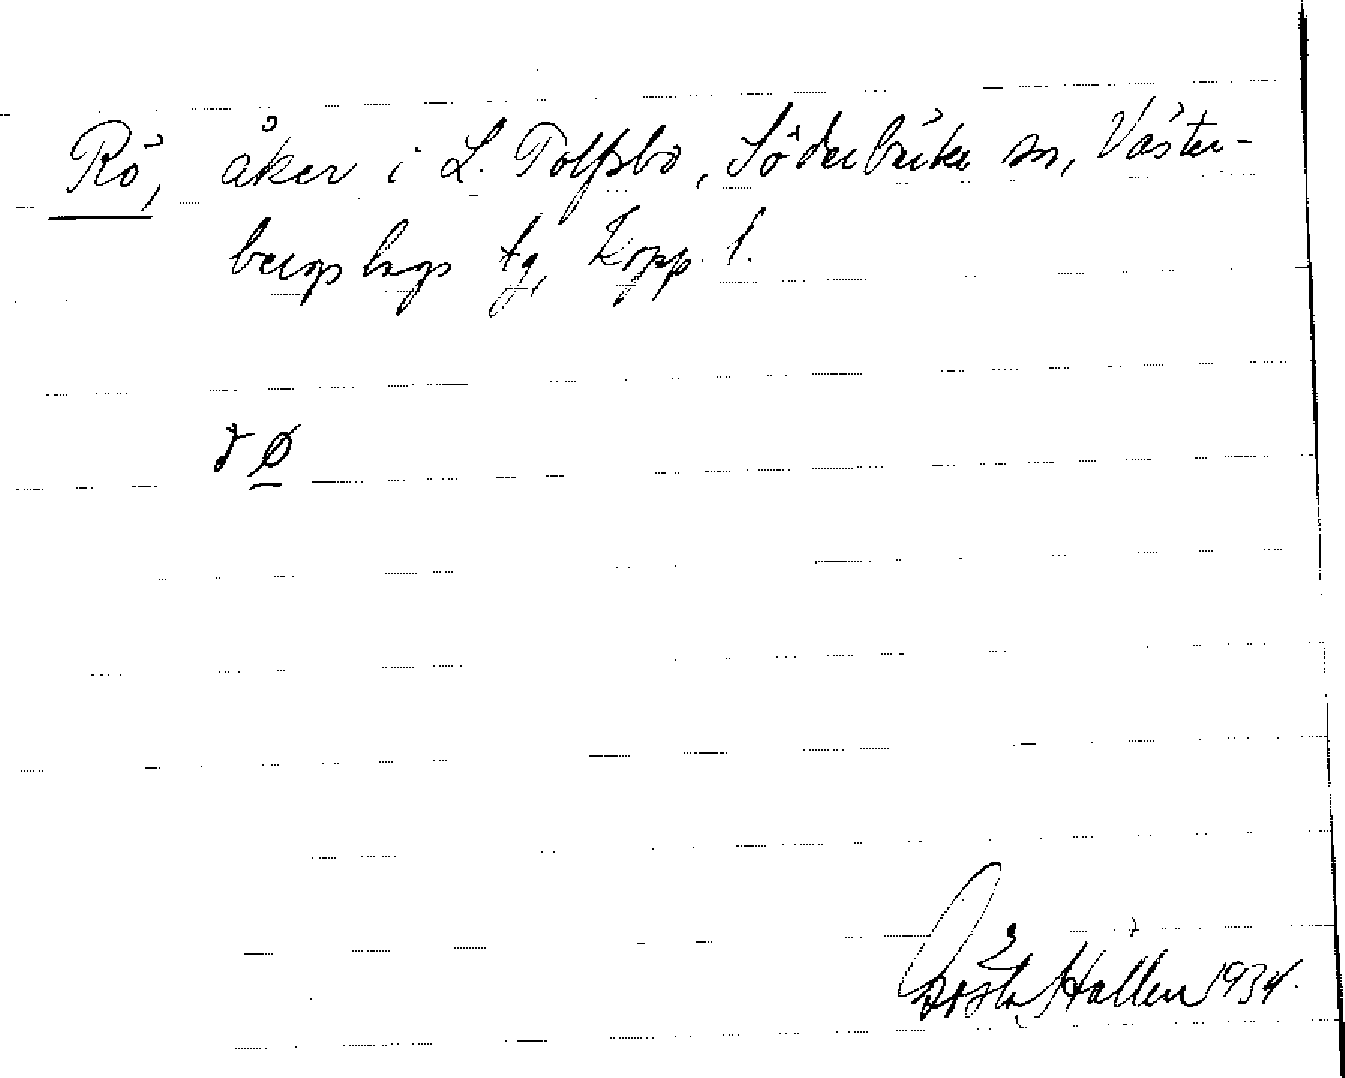 Rö, åker i L. Tolfsbo, Söderbärke sn, Väster-
bergslags tg, Kopp. l.
rø
Gösta Hallen 1934.